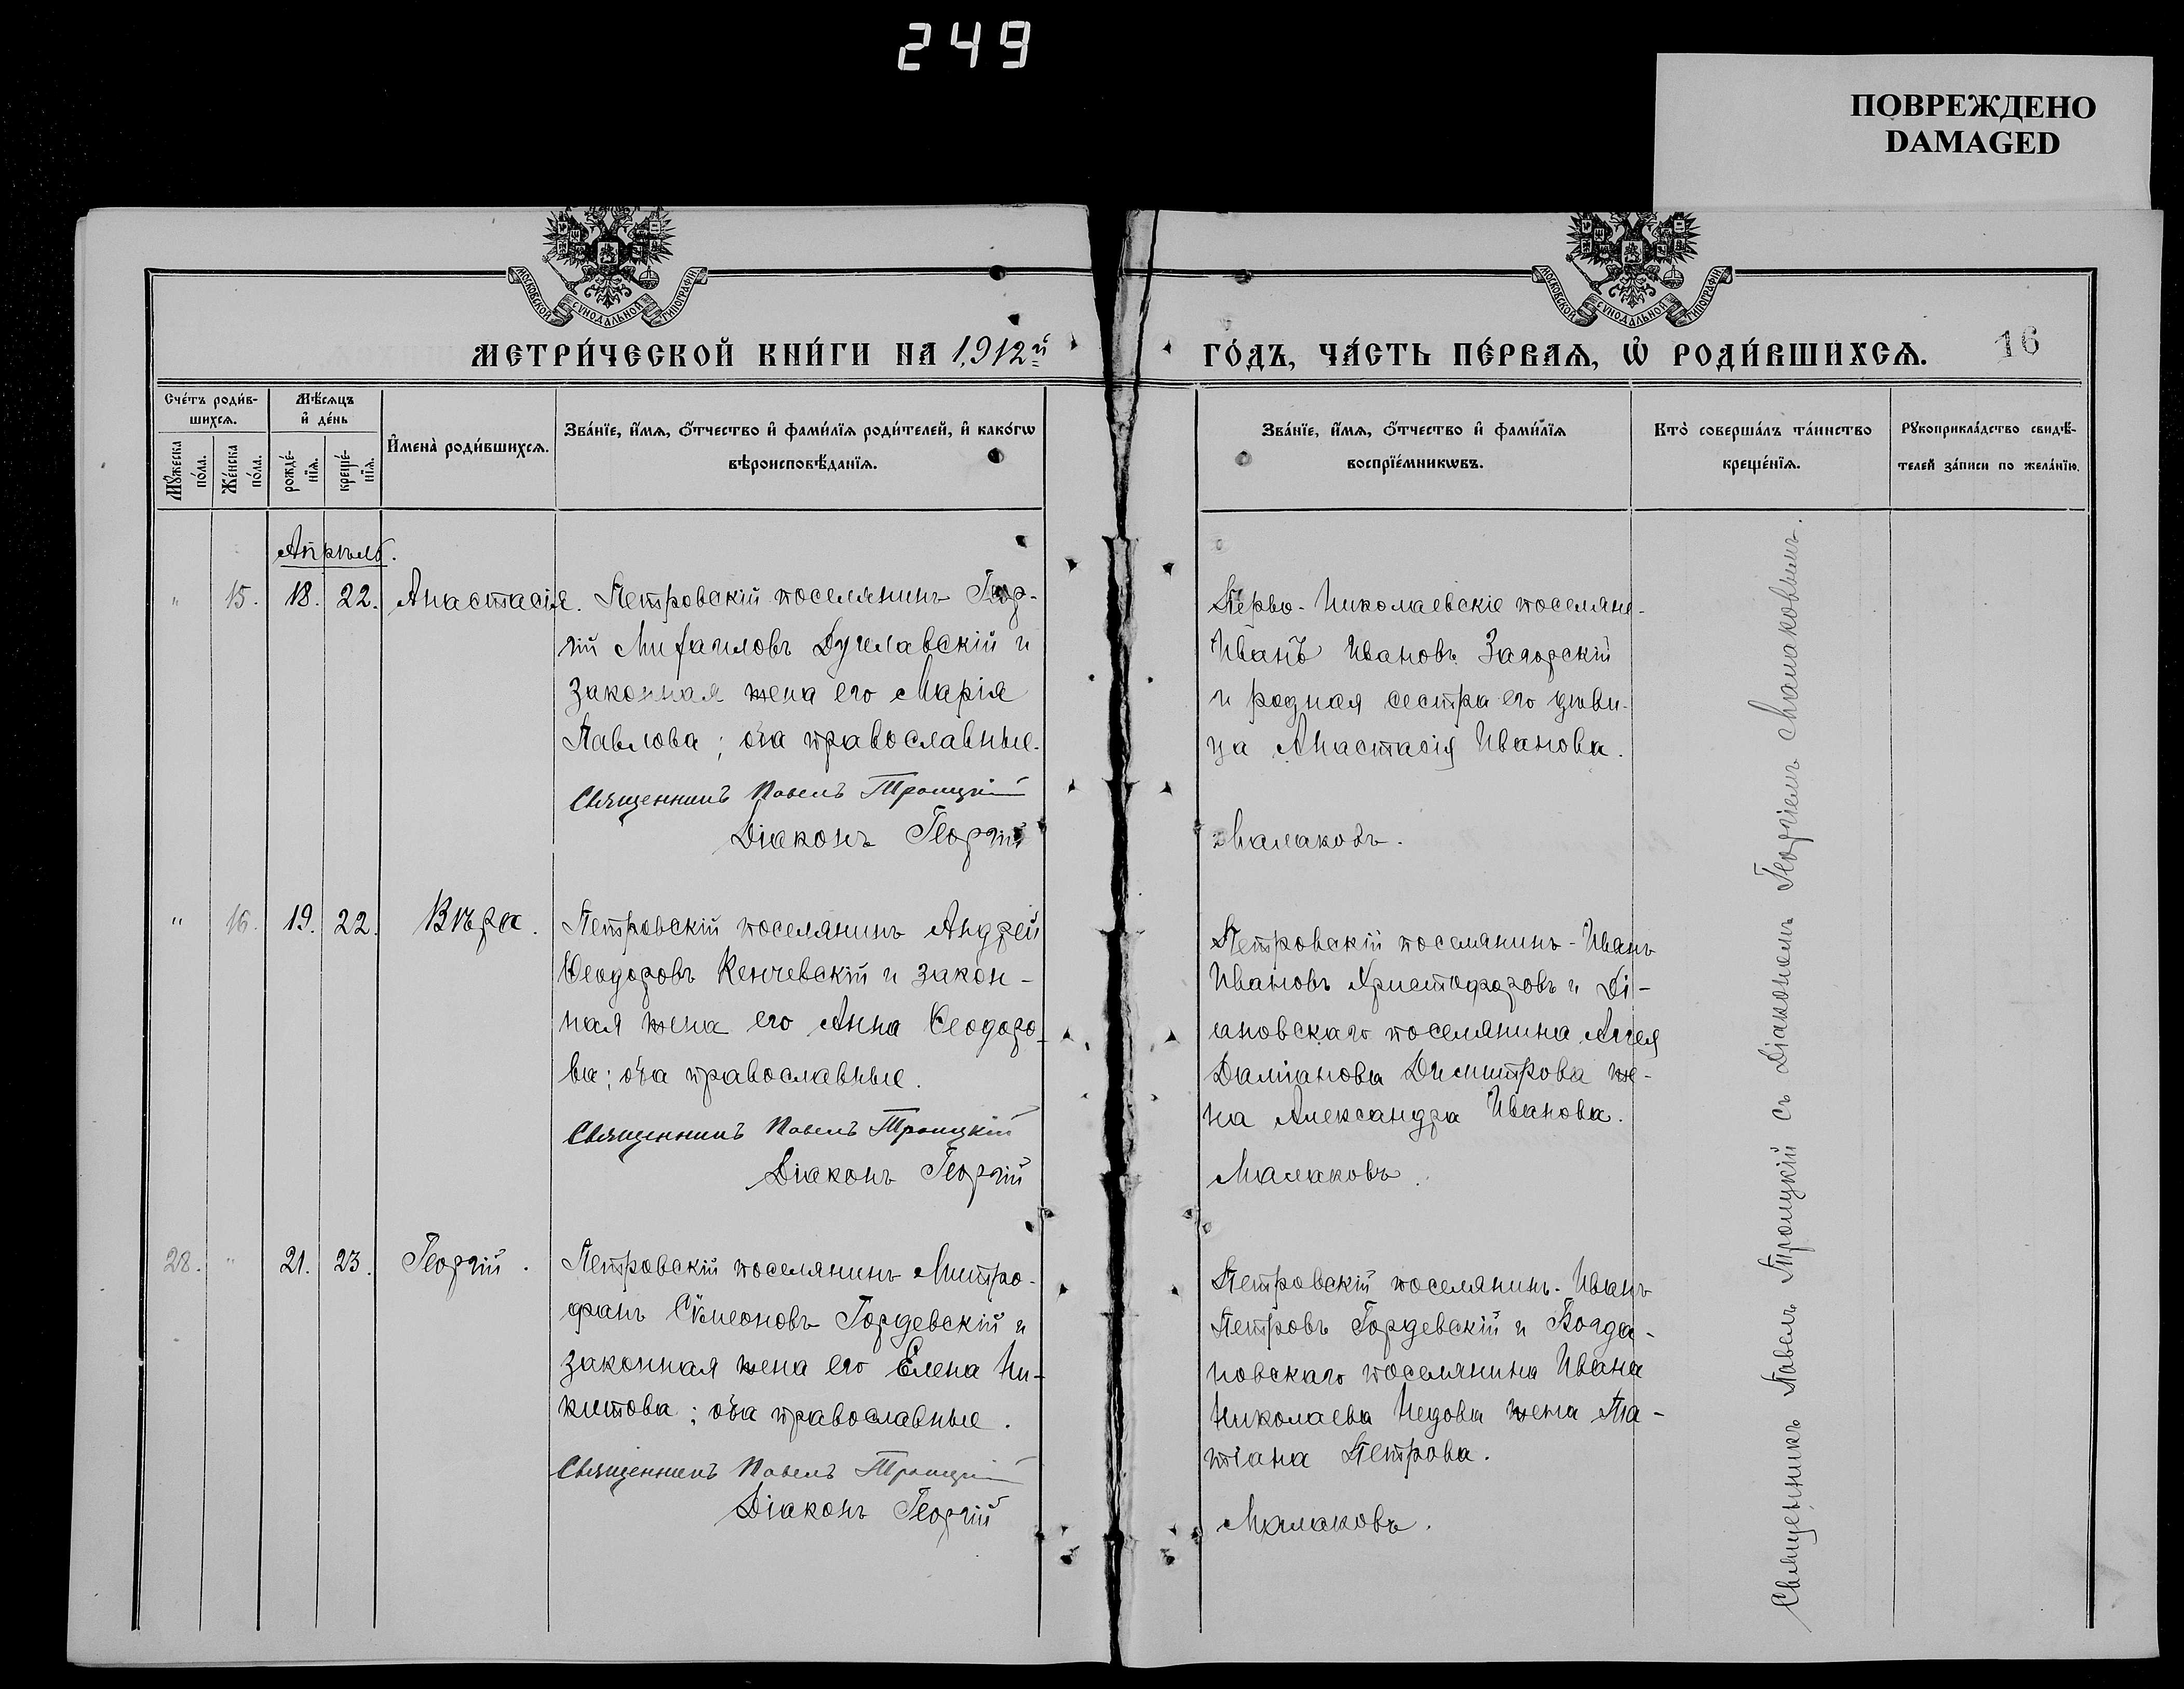 249
ПОВРЕЖДЕНО
DAMAGED
МОСКОВСКОЙ СѴНОДАЛЬНОЙ ТИПОГРАФІИ
МОСКОВСКОЙ СѴНОДАЛЬНОЙ ТИПОГРАФІИ
МЕТРИ́ЧЕСКОЙ КНИ́ГИ НА 1912й
ГО́ДЪ, ЧА́СТЬ ПЕ́РВАѦ, Ѡ҆ РОДИ́ВШИХСѦ.
16
Сче́тъ роди́в-
шихсѧ.
Мꙋ́жеска по́ла.
Же́нска по́ла.
Мѣ́сѧцъ
и҆ де́нь
рожде́-
нїѧ.
креще́-
нїѧ.
И҆мена̀ роди́вшихсѧ.
Зва́нїе, и҆́мѧ, ѻ҆́тчество и҆ фами́лїѧ роди́телей, и҆ како́гѡ
вѣроисповѣ́данїѧ.
Зва́нїе, и҆́мѧ, ѻ҆́тчество и҆ фами́лїѧ
воспрїе́мникѡвъ.
Кто̀ соверша́лъ та́инство
креще́нїѧ.
Рꙋкоприкла́дство свидѣ́-
телей за́писи по жела́нїю.
Апрѣль.
" 15. 18. 22. Анастасія. Петровскій поселянинъ Геор-
гій Михаиловъ Дуклавскій и
законная жена его Марія
Павлова; оба православные.
Священникъ Павелъ Троицкій
Діаконъ Георгій
Перво-Николаевскіе поселяне-
Иванъ Ивановъ Загорскій
и родная сестра его дѣви-
ца Анастасія Иванова.
Малаковъ.
" 16. 19. 22. Вѣра. Петровскій поселянинъ Андрей
Ѳеодоровъ Кенчевскій и закон-
ная жена его Анна Ѳеодоро-
ва; оба православные.
Священникъ Павелъ Троицкій
Діаконъ Георгій
Петровскій поселянинъ-Иванъ
Ивановъ Христофоровъ и Ді-
ановскаго поселянина Аггея
Даміанова Димитрова же-
на Александра Иванова.
Малаковъ.
28. " 21. 23. Георгій. Петровскій поселянинъ Митро-
фанъ Сѵмеоновъ Гордевскій и
законная жена его Елена Ни-
китова; оба православные.
Священникъ Павелъ Троицкій
Діаконъ Георгій
Петровскій поселянинъ-Иванъ
Петровъ Гордевскій и Богда-
новскаго поселянина Ивана
Николаева Недова жена Та-
тіана Петрова.
Малаковъ.
Священникъ Павелъ Троицкій съ Діакономъ Георгіемъ Малаковымъ.